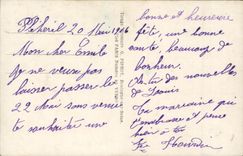 20 Mai 1916
Mon cher Emile
Je ne veux pas
laisser passer le
22 Mai sans venir
te souhaiter une
bonne et heureuse
fête, une bonne
santé, beaucoup de
bonheur.
As-tu des nouvelles
de Louis
Ta marraine qui
t'embrasse et pense
bien à toi